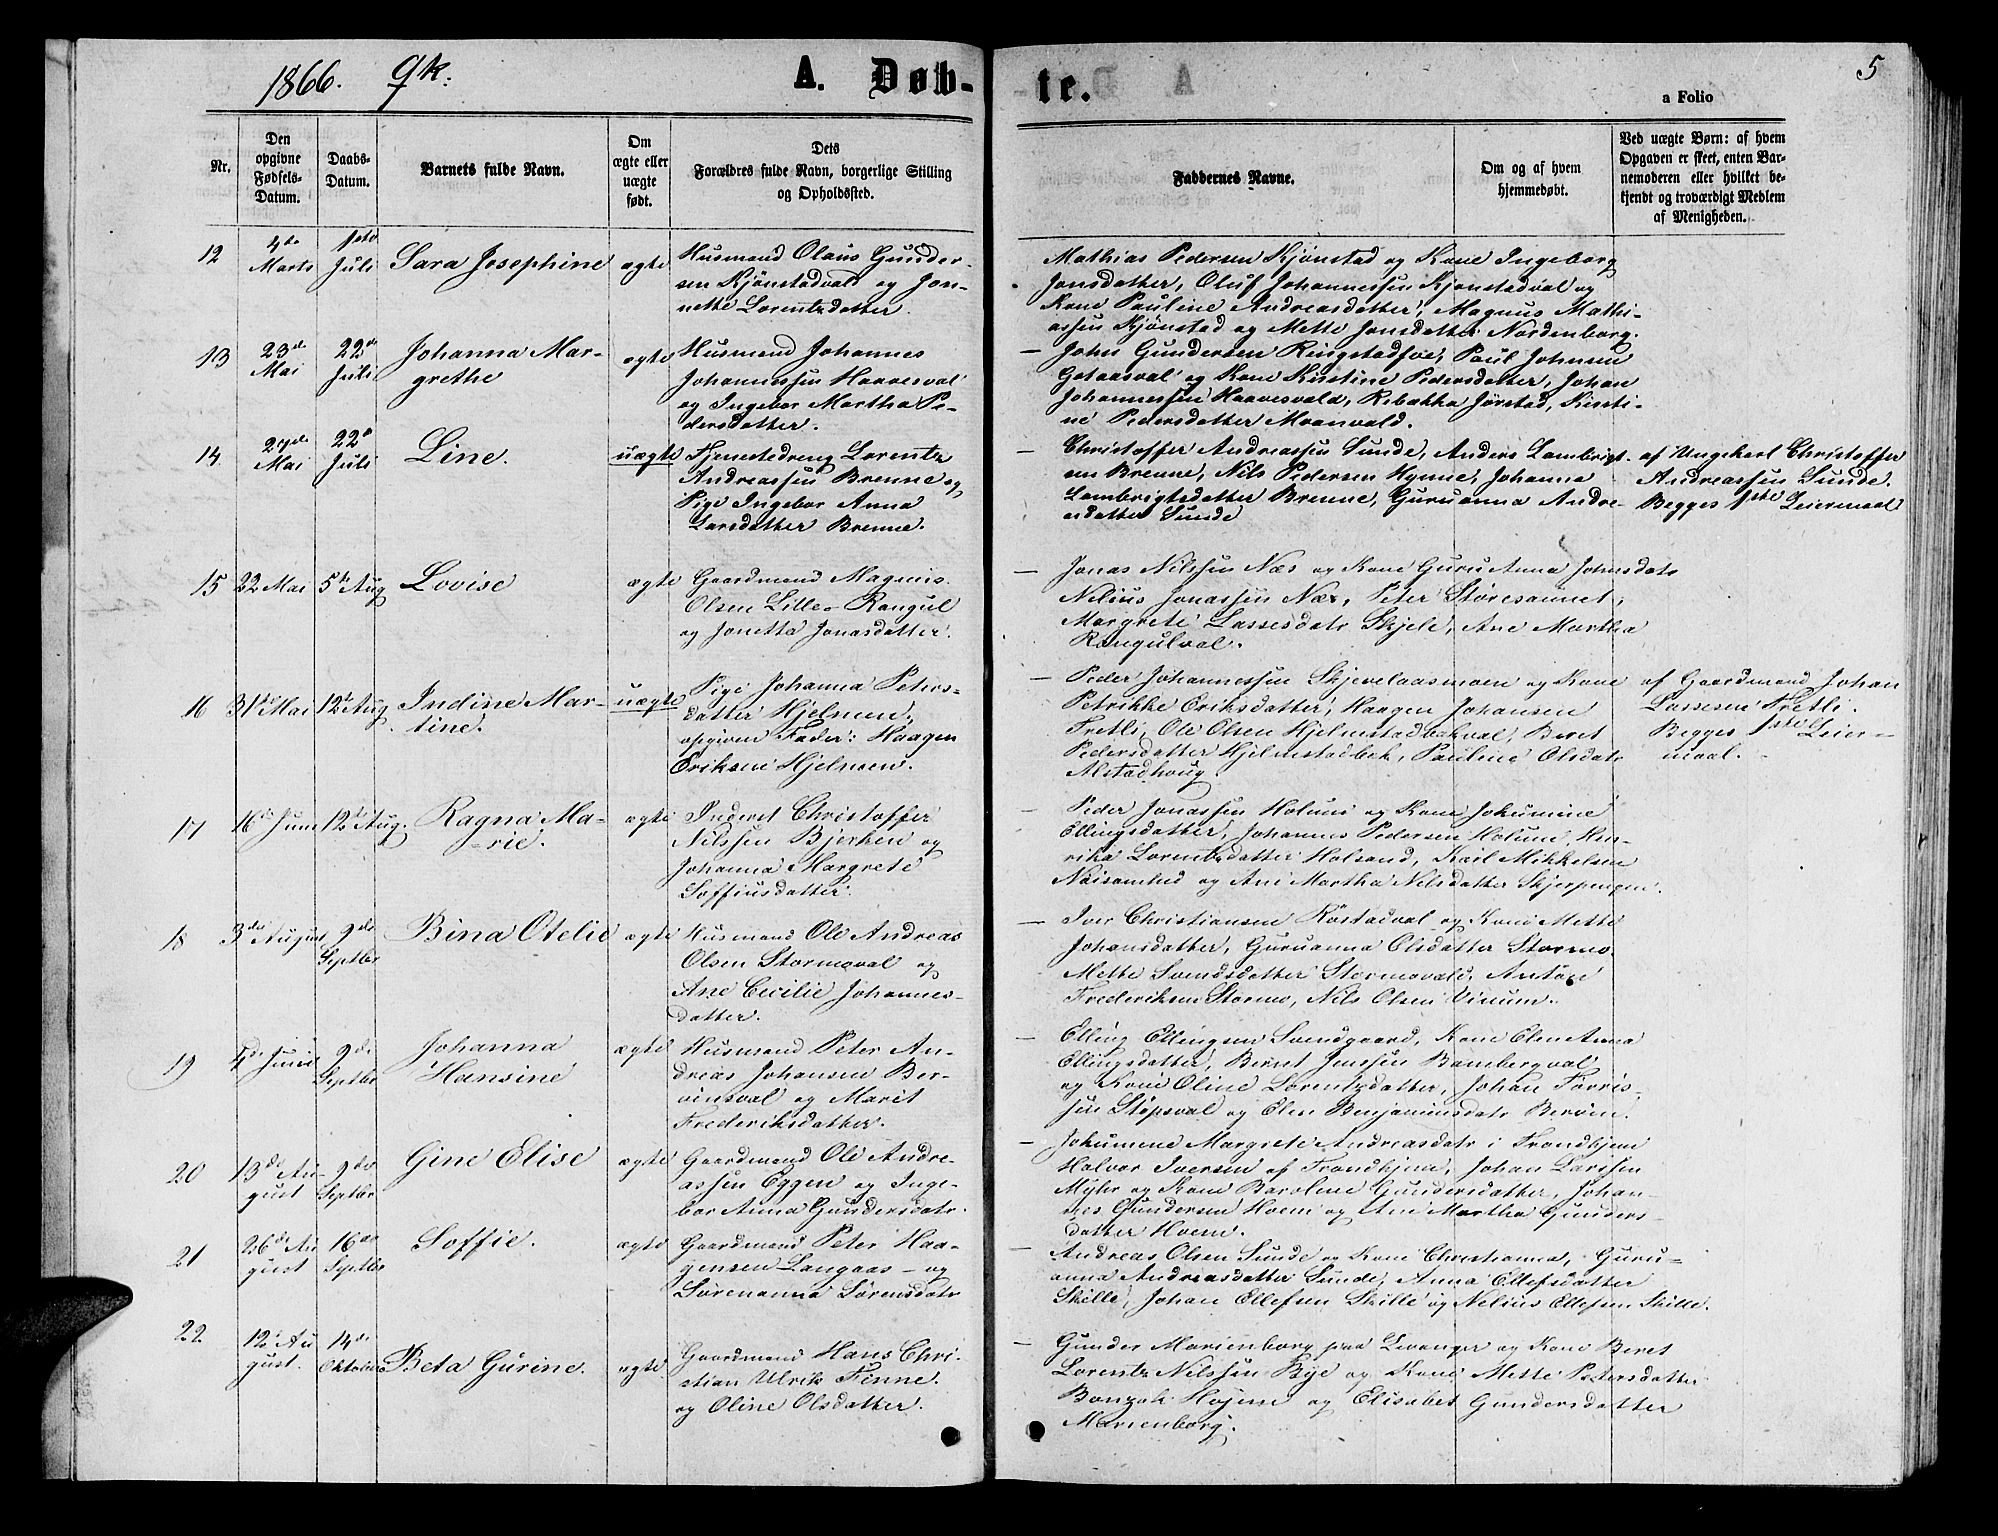 1866. qk.
A. Døb-
te.
5
a Folio
Nr.
Den
opgivne
Fødsels-
Datum.
Daabs-
Datum.
Barnets fulde Navn.
Om
ægte eller
uægte
født.
Dets
Forældres fulde Navn, borgerlige Stilling
og Opholdssted.
Faddernes Navne.
Om og af hvem
hjemmedøbt.
Ved uægte Børn: af hvem
Opgaven er skeet, enten Bar-
nemoderen eller hvilket be-
kjendt og troværdigt Medlem
af Menigheden.
12
4de
Marts
1ste
Juli
Sara Josephine
ægte
Husmand Olaus Gunder-
sen Kjønstadvald og Jon-
nette Lorentsdatter.
Mathias Pedersen Kjønstad og Kone Ingeborg
Jonsdatter, Oluf Johannessen Kjønstadval og
Kone Pauline Andreasdatter, Magnus Mathi-
assen Kjønstad og Mette Jonsdatter Nordenborg.
13
23de
Mai
22de
Juli
Johanna Mar-
grethe
ægte
Husmand Johannes
Johannessen Haavesval
og Ingebor Martha Pe-
dersdatter.
– John Gundersen Ringstad Paul Johnsen
Gotaasval og Kone Kirstine Pedersdatter, Johan
Johannessen Haavesvald, Rebakka Jørstad, Kirsti-
ne Pedersdatter Moanvald.
14
27de
Mai
22de
Juli
Line.
uægte
Tjenestedreng Lorents
Andreassen Brenne og
Pige Ingebor Anna
Larsdatter Brenne.
– Christoffer Andreassen Sunde, Anders Lambrigt-
sen Brenne, Nils Pedersen Hynne, Johanna
Lambrigtsdatter Brenne, Guruanna Andre-
asdatter Sunde
af Ungekarl Christoffer
Andreassen Sunde.
Begges 1ste Leiermaal
15
22 Mai
5te Aug
Lovise
ægte
Gaardmand Magnus
Olsen Lille-Rangul
og Jonetta Jonasdatter.
– Jonas Nilssen Næs og Kone Guru Anna Johnsdatr
Nelius Jonassen Næs, Peter Støresannet,
Margrete Lassesdatr Skjele, Ane Martha
Rangulval.
16
31te Mai
12te Aug
Indine Mar-
tine.
uægte
Pige Johanna Peters-
datter Hjelmen,
opgiven Fader: Haagen
Eriksen Hjelmen.
– Peder Johannessen Skjevelaasmoen og Kone
Petrikke Eriksdatter, Haagen Johansen
Fretli, Ole Olsen Hjelmstadbakval, Beret
Pedersdatter Hjelmstadbek, Pauline Olsdatr
Alstadhoug
af Gaardmand Johan
Lassesen Fretli.
Begges 1ste Leier-
maal.
17
16de Juni
12te Aug.
Ragna Ma-
rie.
ægte
Inderst Christoffer
Nilssen Bjerken og
Johanna Margrete
Soffiusdatter.
– Peder Jonassen Holum og Kone Jokumine
Ellingsdatter, Johannes Pedersen Holum, Hen-
rika Lorentsdatter Holsand, Karl Mikkelsen
og Ane Martha Nilsdatter Skjerpengen.
18
3de August
9de
Septbr
Bina Otelie
ægte
Husmand Ole Andreas
Olsen Stormoval og
Ane Cecilie Johannes-
datter.
– Iver Christiansen Røstadval og Kone Mette
Johansdatter, Guruanna Olsdatter Stormo
Mette Svendsdatter Stormovald, Antøn
Frederiksen Stormo, Nils Olsen Vinum.
19
4de Juni
9de
Septbr
Johanna
Hansine
ægte
Husmand Peter An-
dreas Johansen Ber-
vinsval og Marit
Frederiksdatter.
– Elling Ellingsen Svendgaard, Kone Elen Anna
Ellingsdatter, Bernt Jensen Bambergval
og Kone Oline Lorentzdatter, Johan Tørris-
sen Støpsval og Elen Benjaminsdatr Berøen.
20
13de Au-
gust
9de
Septbr
Gine Elise
ægte
Gaardmand Ole Andre-
assen Eggen og Inge-
bor Anna Gundersdatr.
– Jokumene Margrete Andreasdatr i Trondhjem
Halvor Iversen af Trondhjem, Johan Larssen
Myhr og Kone Baroline Gundersdatter, Johan-
nes Gundersen Hoem og Ane Martha Gunders-
datter Hoem.
21
26de Au
gust
16de
Septbr
Soffie.
ægte
Gaardmand Peter Haa-
gensen Langaas – og
Sørenanna Sørensdatr
– Andreas Olsen Sunde og Kone Christianna, Guru-
anna Andreasdatter Sunde, Anna Ellefsdatter
Skille, Johan Ellefsen Skille og Nelius Ellefsen Skille.
22
12te Au
gust.
14de
Oktober
Beta Gurine.
ægte
Gaardmand Hans Chri-
stian Ulrik Finne.
og Oline Olsdatter.
– Gunder Marienborg paa Levanger og Kone Beret
Lorents Nilssen Bye og Kone Mette Pedersdatter
Højem og Elisabet Gundersdatter
Marienborg.